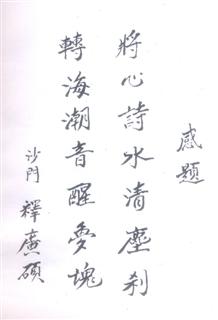 感題
將心詩水清塵剎
轉海潮音醒夢塊
沙門 釋廣碩